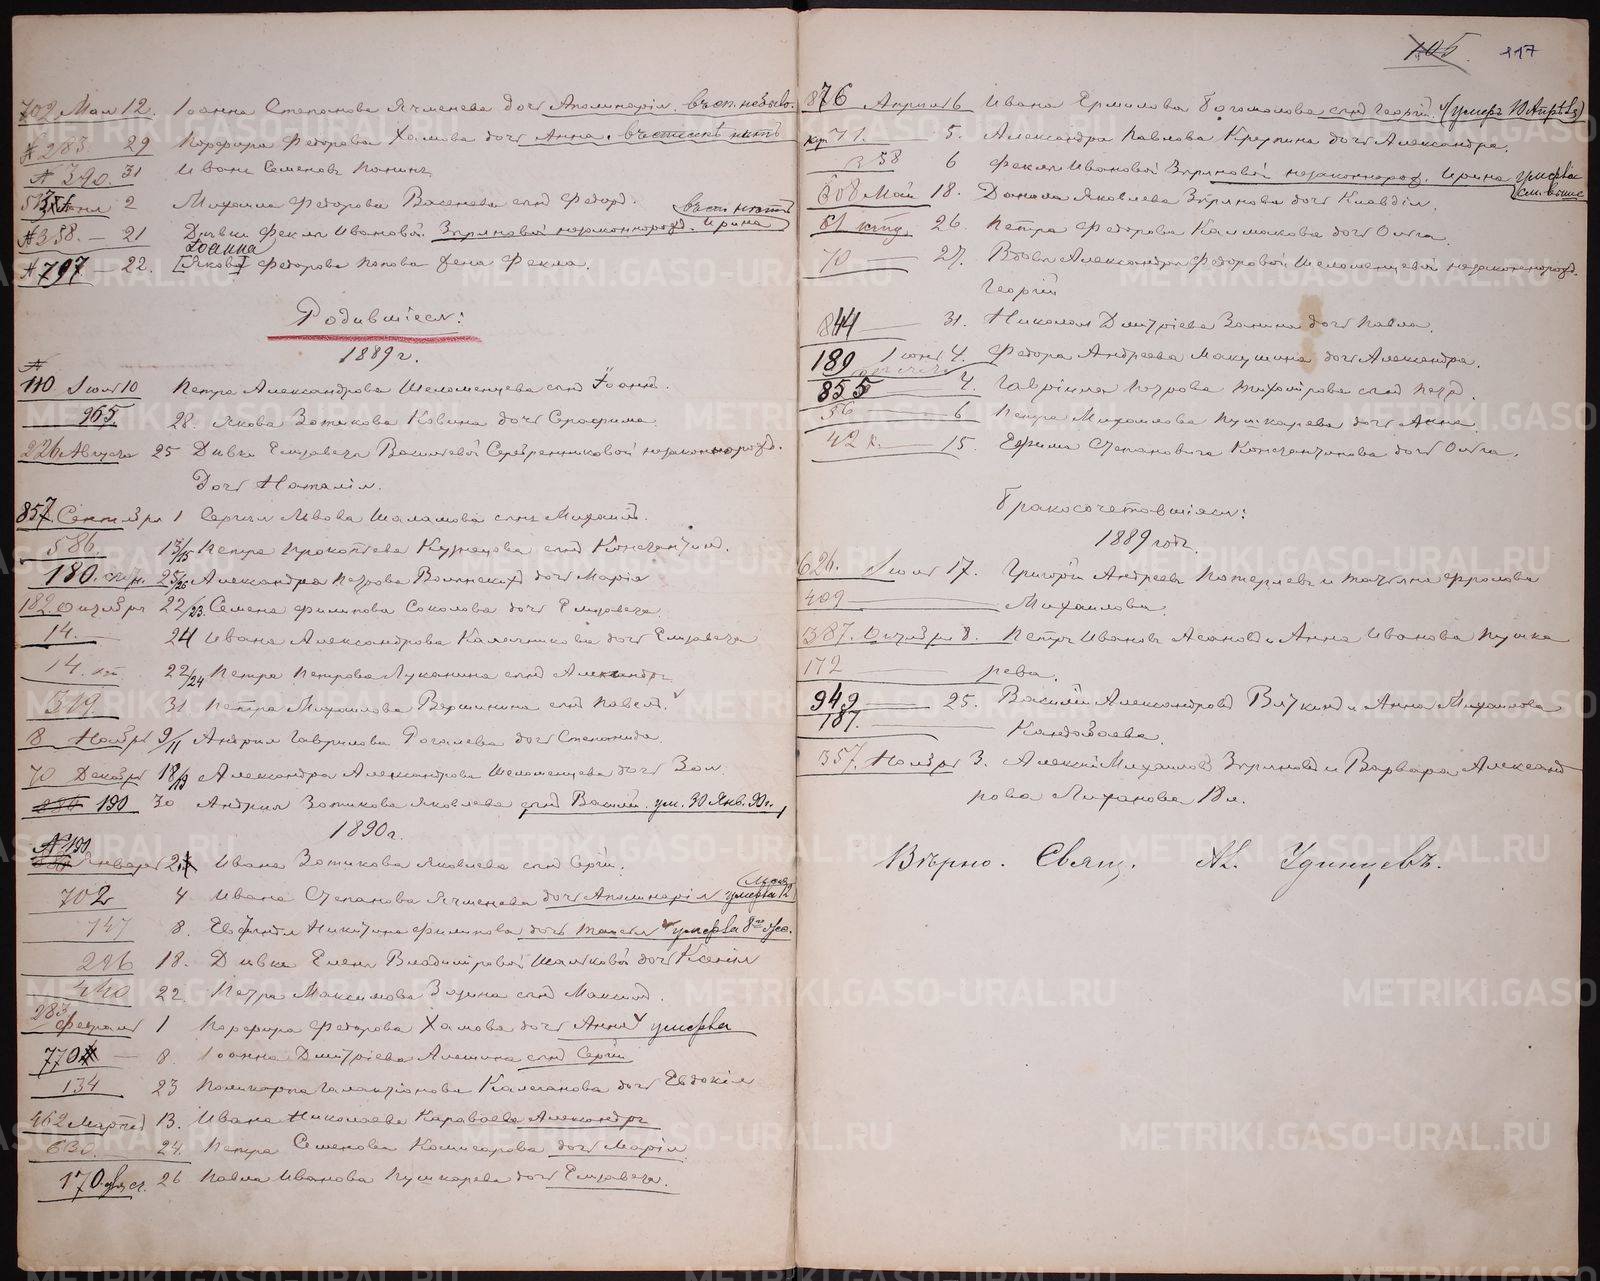 702 Мая 12. Іоанна Степанова Ячменева дочь Аполинарія.
№ 283. 29 Порфира Федорова Хамова дочь Анна.
№ 390. 31 Иванъ Семеновъ Панинъ
2 Михаила Федорова Васнева сынъ Федоръ.
№ 358. — 21 Дѣвки Феклы Ивановой Зыряновой незаконнорожд. Ирина
Іоанна
№ 797 — 22. [Якова] Федорова Попова жена Фекла.
Родившіеся:
1889 г.
№ 110 Іюля 10 Петра Александрова Шеломенцева сынъ Іоаннъ.
965. 28. Якова Зотикова Ковина дочь Серафима
226 Августа 25 Дѣвки Елизаветы Васильевой Серебренниковой незаконнорожд.
Дочь Наталія.
857 Сентября 1 Сергія Львова Шаламова сынъ Михаилъ.
586. 13/15 Петра Прокопьева Кузнецова сынъ Константинъ.
180. 25/26 Александра Петрова Волынскихъ дочь Марія
182 Октября 22/23. Семена Филипова Соколова дочь Елизавета.
14. — 24 Ивана Александрова Калачникова дочь Елизавета
14. 22/24 Петра Петрова Луканина сынъ Александръ
519. 31 Петра Михайлова Вершинина сынъ Павелъ.
8 Ноября 9/11 Андрея Гаврилова Рогалева дочь Степанида.
70 Декабря 18/19 Александра Александрова Шеломенцева дочь Зоя.
190 30 Андрея Зотикова Яковлева сынъ Василій. ум. 30 Янв. 90 г.
1890 г.
№ 190
Января 2 Ивана Зотикова Яковлева сынъ Сергій.
702 4 Ивана Степанова Ячменева дочь Аполинарія умерла 12 Мая
747 8. Никитина Филипова дочь Таисія умерла
226 18. Дѣвки Елены Владиміровой дочь Ксенія
440 22. Петра Максимова Зязина сынъ Максимъ.
283 Февраля 1 Порфира Федорова Хамова дочь Анна умерла
770 — 8. Іоанна Дмитріева Алешина сынъ Сергій
134 23 Поликарпа Галактіонова Калеганова дочь Евдокія
462 Мартъ 13. Ивана Николаева Караваева Александръ
630. 24. Петра Семенова Комисарова дочь Марія
170. 26 Павла Иванова Пушкарева дочь Елизавета.
105 117
876 Апрѣль 6 Ивана Ермилова Богомолова сынъ Георгій. (умеръ 10 Апрѣля)
71. 5. Александра Павлова Крупина дочь Александра.
358 6 Феклы Ивановой Зыряновой незаконнорожд. Ирина умерла см. выше
608 Май 18. Данила Яковлева Зырянова дочь Клавдія.
61 26. Петра Федорова Калмакова дочь Ольга.
70 — 27. Вдовы Александры Федоровой Шеломенцевой незаконнорожд.
Георгій
844 — 31. Николая Дмитріева Занина дочь Павла.
189 Іюнь 4. Федора Андреева Макушина дочь Александра.
855 4. Гавріила Петрова Тихомірова сынъ Петръ.
56 — 6 Петра Михайлова Пушкарева дочь Анна
42 к. — 15. Ефима Степановича Константинова дочь Ольга.
Бракосочетавшіеся:
1889 годъ.
626. Іюля 17. Григорій Андреевъ Потеряевъ и Татьяна Фролова
409 Михайлова.
387. Октября 8. Петръ Ивановъ Асановъ и Анна Иванова Пушка
172 рева.
949 — 25. Василій Александровъ Вяткинъ и Анна Михайлова
187. Кандабаева.
357. Ноября 3. Алексѣй Михайловъ Зыряновъ и Варвара Александ
рова Лиханова 18 л.
Вѣрно. Свящ. Ал. Удинцевъ.